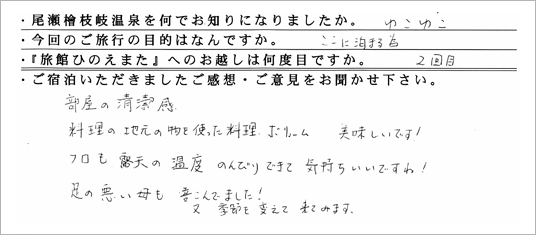 ・尾瀬檜枝岐温泉を何でお知りになりましたか。 ゆこゆこ
・今回のご旅行の目的はなんですか。 ここに泊まる為
・『旅館ひのえまた』へのお越しは何度目ですか。 2回目
・ご宿泊いただきましたご感想・ご意見をお聞かせ下さい。
部屋の清潔感
料理の地元の物を使った料理、ボリューム 美味しいです!
フロも露天の温度 のんびりできて気持ちいいですね!
足の悪い母も喜こんでました!
又 季節を変えて来てみます。